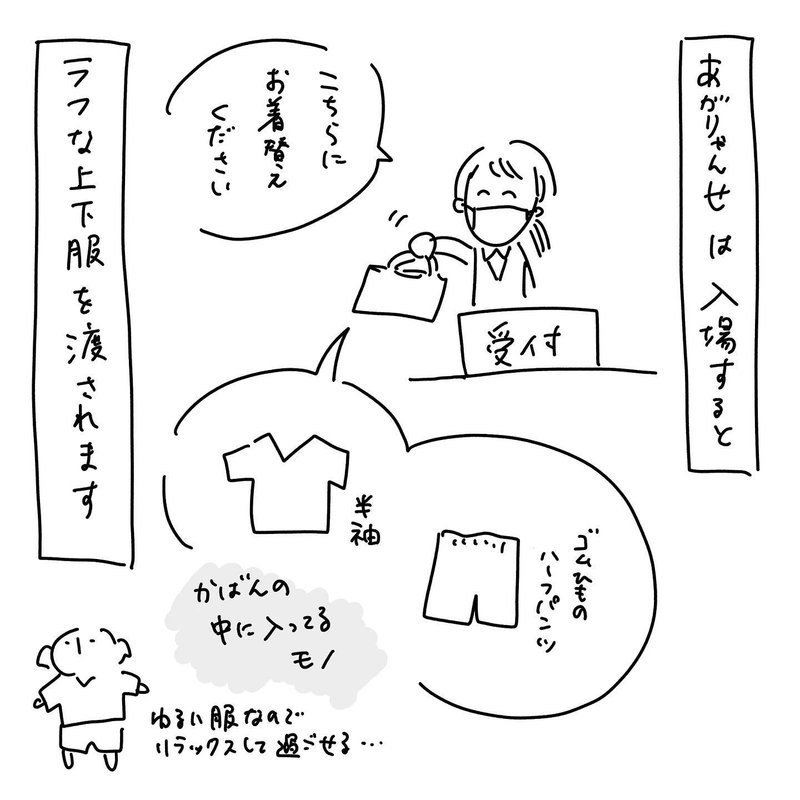 あがりゃんせは入場すると
こちらに
お着替え
ください
受付
半袖
ゴムひもの
ハーフパンツ
かばんの
中に入ってる
モノ
ラフな上下服を渡されます
ゆるい服なので
リラックスして過ごせる…